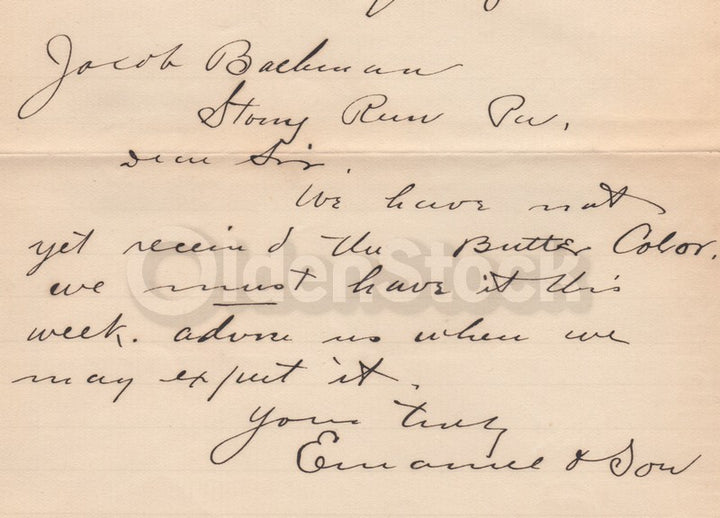 Jacob Bachman
Stony Run Pa.
Dear Sir,
We have not
yet received the Butter Color.
we must have it this
week. advise us when we
may expect it.
Yours truly
Emanuel & Son
OldenStock